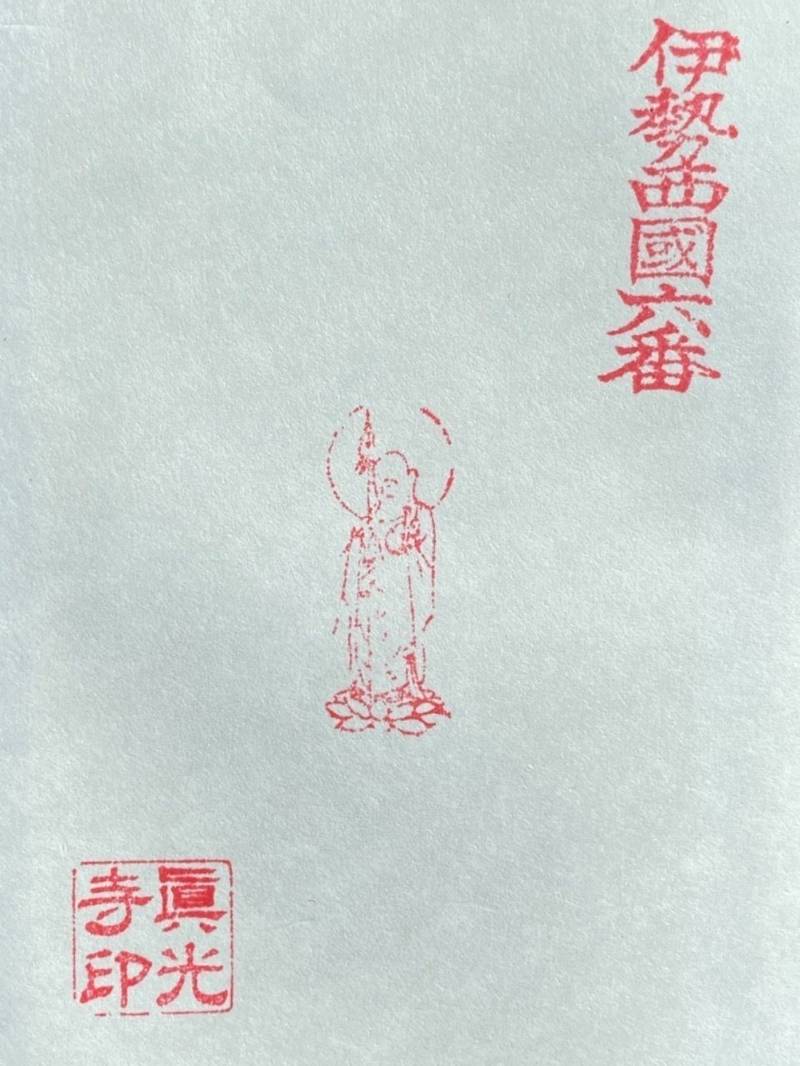 伊勢西國六番
眞光
寺印